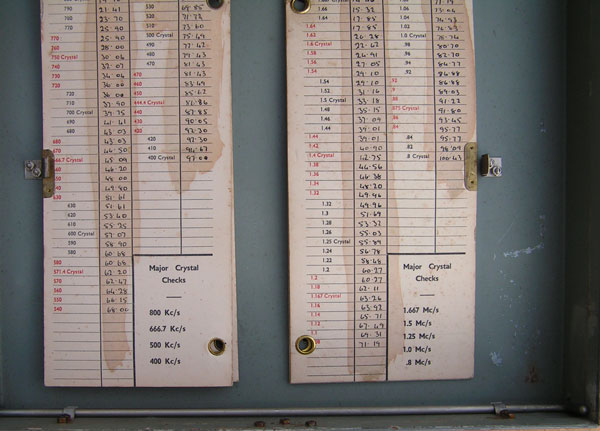 790 21.41
780 23.70
770 25.90
770 25.90
750 Crystal 30.06
740 32.07
730 34.06
720 36.00
720 36.00
710 37.90
700 Crystal 39.75
690 41.41
680 43.03
680 43.03
670 44.50
666.7 Crystal 45.09
660 46.20
48.00
49.80
630 51.61
630 51.61
620 53.40
610 55.25
600 Crystal 57.07
590 58.90
580 60.68
580 60.68
571.4 Crystal 62.20
570 62.47
560 64.28
550 66.15
540 68.00
530 69.85
520 71.72
510 73.60
500 Crystal 75.49
490 77.42
480 79.41
470 81.43
470 81.43
460 83.49
450 85.62
444.4 Crystal 86.86
440 87.85
430 90.05
420 92.30
420 92.30
410 94.67
400 Crystal 97.00
Major Crystal
Checks
800 Kc/s
666.7 Kc/s
500 Kc/s
400 Kc/s
1.66 15.32
1.64 17.85
1.64 17.85
1.62 20.28
1.6 Crystal 22.62
1.58 24.91
1.56 27.05
1.54 29.10
1.54 29.10
1.52 31.16
1.5 Crystal 33.18
1.48 35.15
1.46 37.09
1.44 39.01
1.44 39.01
1.42 40.90
1.4 Crystal 42.75
1.38 44.56
1.36 46.38
1.34 48.20
1.32 49.96
1.32 49.96
1.3 51.69
1.28 53.37
1.26 55.03
1.25 Crystal 55.89
1.24 56.78
1.22 58.48
1.2 60.27
1.2 60.27
1.18 62.11
1.167 Crystal 63.26
1.16 63.92
1.14 65.71
1.12 67.49
1.1 69.31
71.19
71.19
1.06
1.04
1.02
1.0 Crystal
.98 80.70
.96 82.70
.94 84.77
.92 86.88
.92 86.88
.9 89.03
.88 91.22
.875 Crystal 91.80
.86 93.45
.84 95.77
.84 95.77
.82 98.09
.8 Crystal 100.43
Major Crystal
Checks
1.667 Mc/s
1.5 Mc/s
1.25 Mc/s
1.0 Mc/s
.8 Mc/s